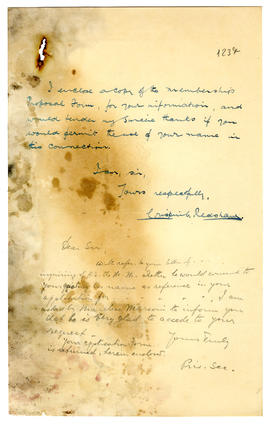 1234
I enclose a copy of the membership
Proposal Form, for your information, and
would tender my sincere thanks if you
would permit the use of your name in
this connection.
I am, sir,
Yours respectfully,
Dear Sir
With refer. to your letter of ...
inquiring if he would consent to
your quoting name as reference in your
application I am
asked by Marconi to inform you
that he is very glad to accede to your
request.
Your application form
is returned, herein enclosed.
Yours truly
Priv. Sec.